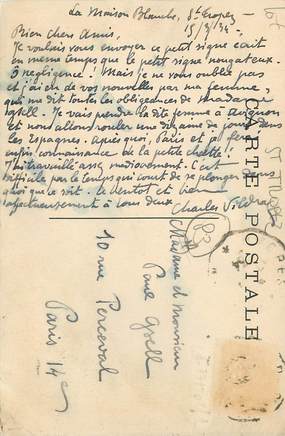 La Maison Blanche, St Tropez
15/3/34
Bien chers Amis,
Je voulais vous envoyer ce petit signe écrit
en même temps que le petit signe nougateux.
O négligence ! Mais je ne vous oublie pas
et j'ai eu de vos nouvelles par ma femme,
qui me dit toutes les obligeances de madame
Gsell. Je vais rendre la dite femme à Avignon
et nous allons rouler une dizaine de jours dans
les Espagnes. Après quoi, Paris et je ferai
enfin connaissance de la petite chatte !
Ai travaillé assez médiocrement. C'est
difficile par le temps qui court de se plonger dans
quoi que ce soit. À bientôt et bien
affectueusement à vous deux
Charles Vildrac
CARTE POSTALE
Madame et Monsieur
Paul Gsell
10 rue Perceval
Paris 14e